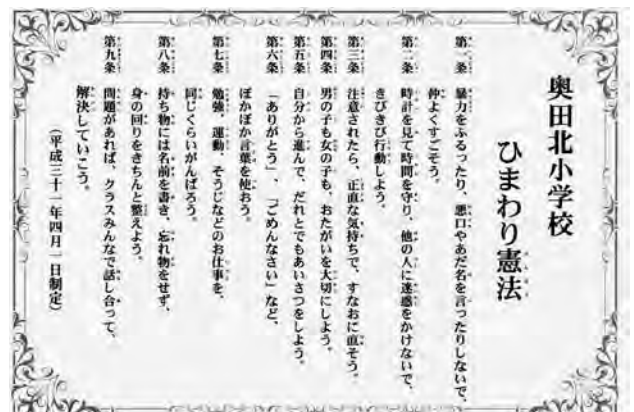 奥田北小学校
ひまわり憲法
第一条 暴力をふるったり、悪口やあだ名を言ったりしないで、
仲よくすごそう。
第二条 時計を見て時間を守り、他の人に迷惑をかけないで、
きびきび行動しよう。
第三条 注意されたら、正直な気持ちで、すなおに直そう。
第四条 男の子も女の子も、おたがいを大切にしよう。
第五条 自分から進んで、だれとでもあいさつをしよう。
第六条 「ありがとう」、「ごめんなさい」など、
ぽかぽか言葉を使おう。
第七条 勉強、運動、そうじなどのお仕事を、
同じくらいがんばろう。
第八条 持ち物には名前を書き、忘れ物をせず、
身の回りをきちんと整えよう。
第九条 問題があれば、クラスみんなで話し合って、
解決していこう。
(平成三十一年四月一日制定)